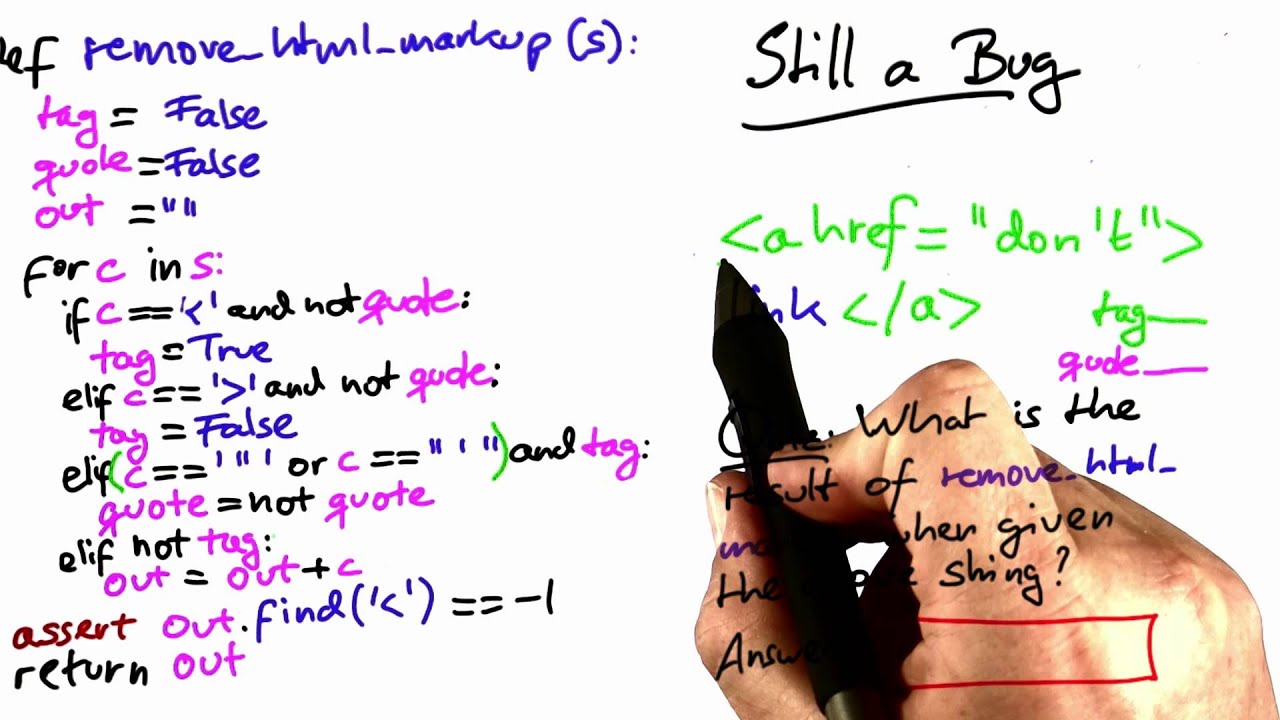 def remove_html_markup (s):
tag = False
quote = False
out = ""
for c in s:
if c == '<' and not quote:
tag = True
elif c == '>' and not quote:
tag = False
elif (c == '"' or c == "'") and tag:
quote = not quote
elif not tag:
out = out + c
assert out.find('<') == -1
return out
Still a Bug
<a href = "don't">
</a>
tag __
quote __
What is the
result of remove_html_
when given
the string?
Answer